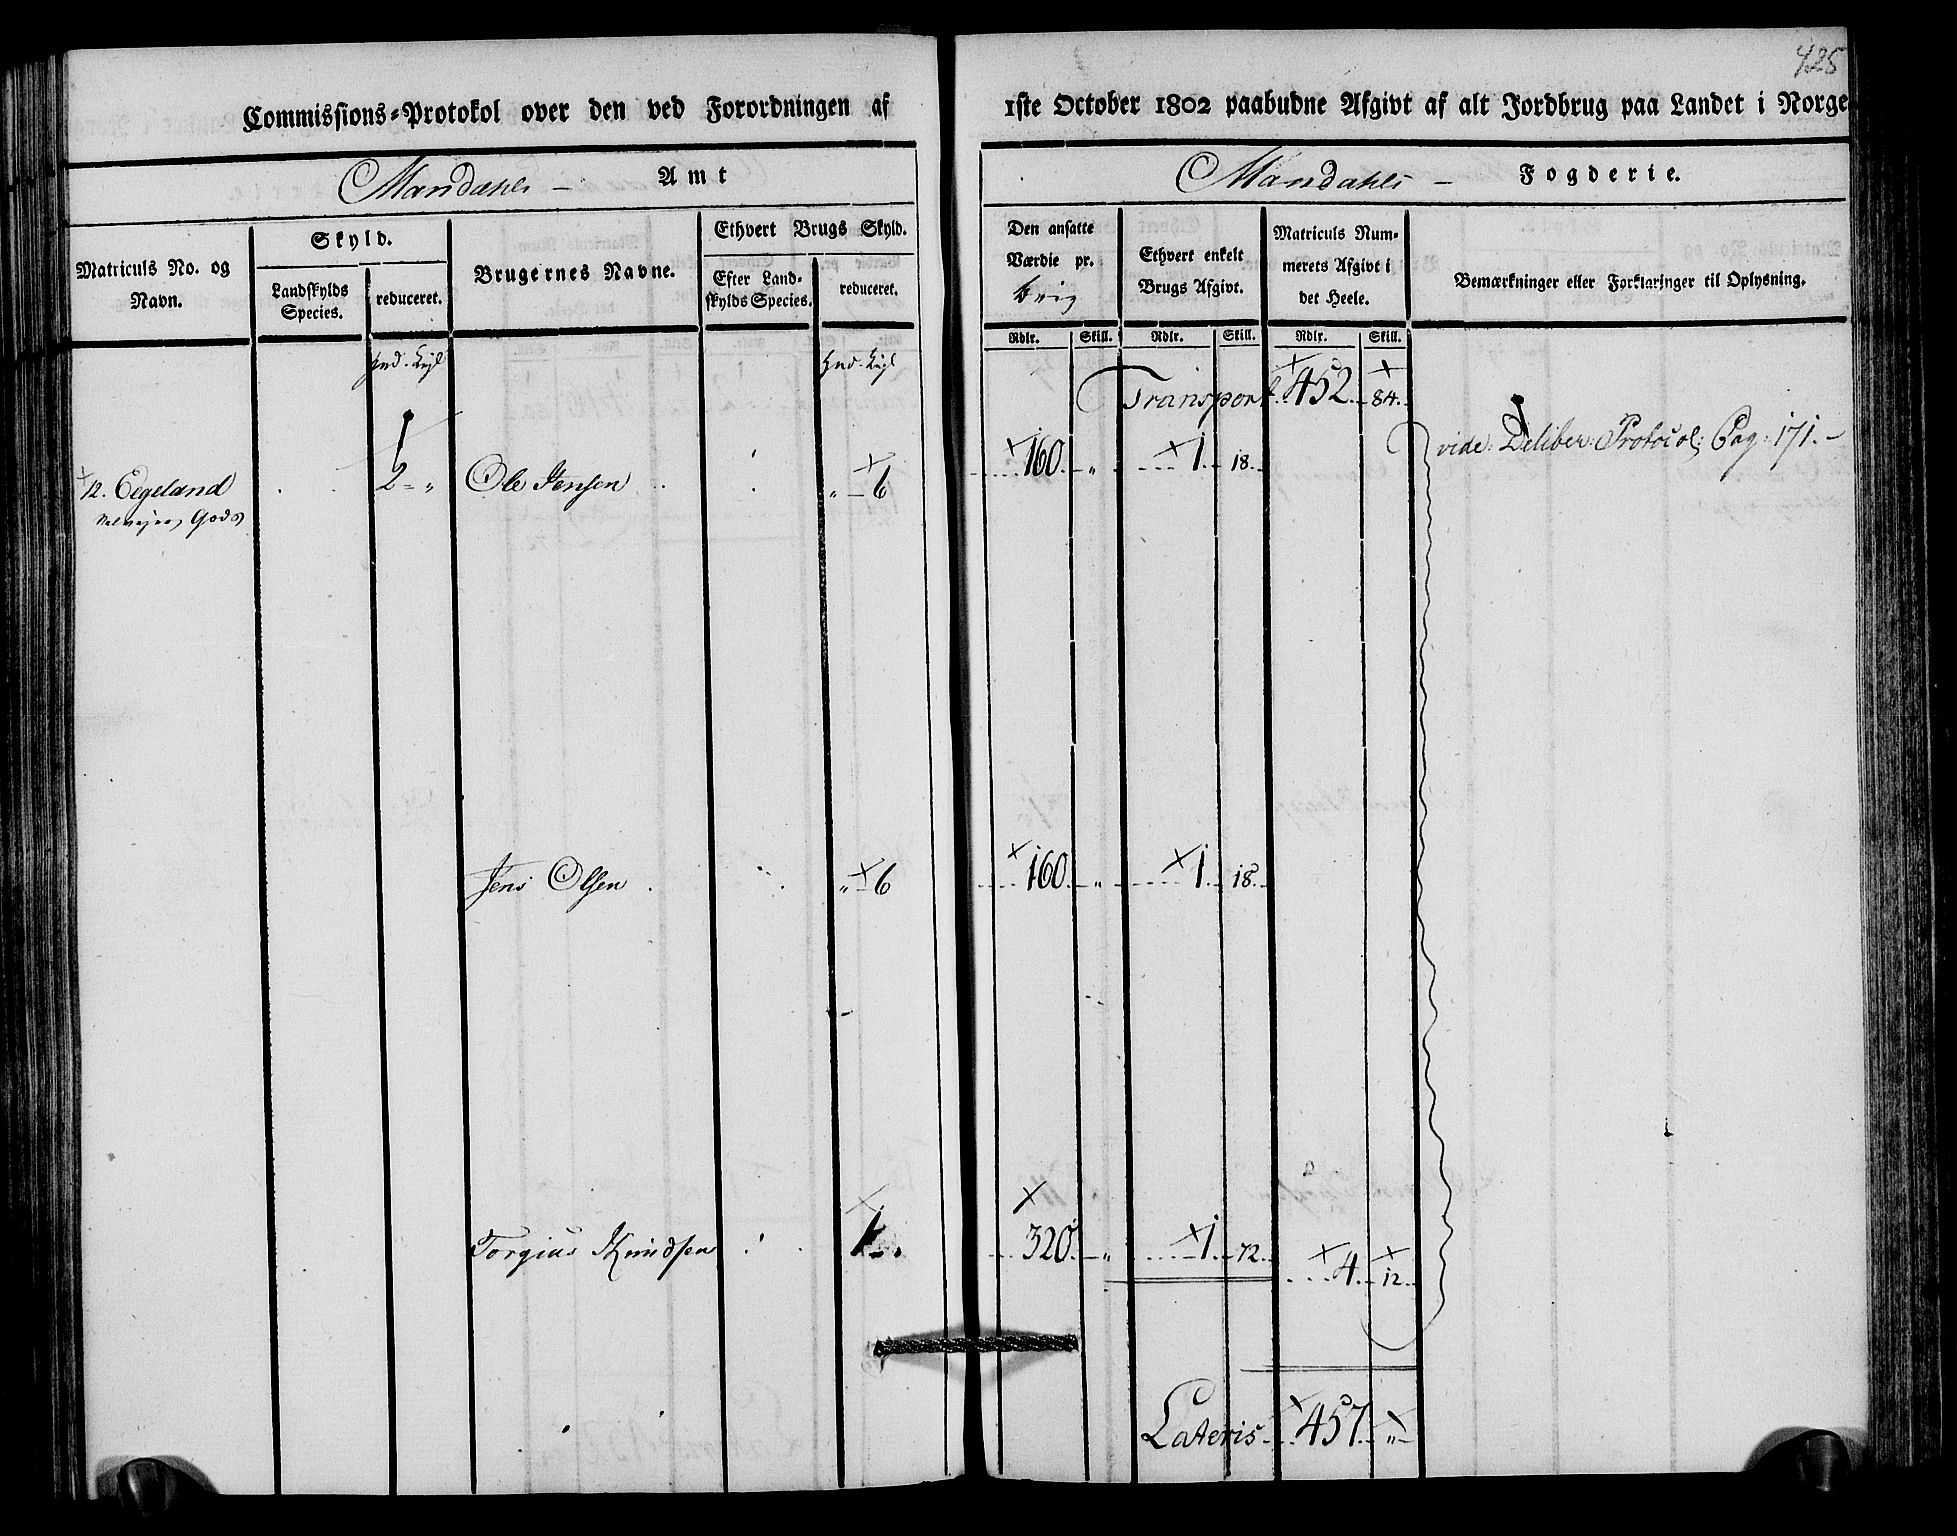 425
Commissions-Protokol over den ved Forordningen af 1ste October 1802 paabudne Afgivt af alt Jordbrug paa Landet i Norge
Mandahls - Amt
Mandahls - Fogderie.
Matriculs No. og Navn.
Skyld.
Landskylds Species.
reduceret.
Brugernes Navne.
Ethvert Brugs Skyld.
Efter Landskylds Species.
reduceret.
Den ansatte Værdie pr. brug
Ethvert enkelt Brugs Afgivt.
Matriculs Nummerets Afgivt i det Heele.
Bemærkninger eller Forklaringer til Oplysning.
Rdlr. Skill. Rdlr. Skill. Rdlr. Skill.
Hud. Kigl
Hud. Kigl
Transport 452. 84.
12. Eegeland 2 = „ Ole Jensen „ - 6 160 „ 1 18 vide: Deliber: Protocol: Pag: 171. -
Gods
Jens Olsen „ - 6 160 „ 1 18
Torgius Knudsen 1 - „ 320 „ 1 72 4 12
Lateris 457 „